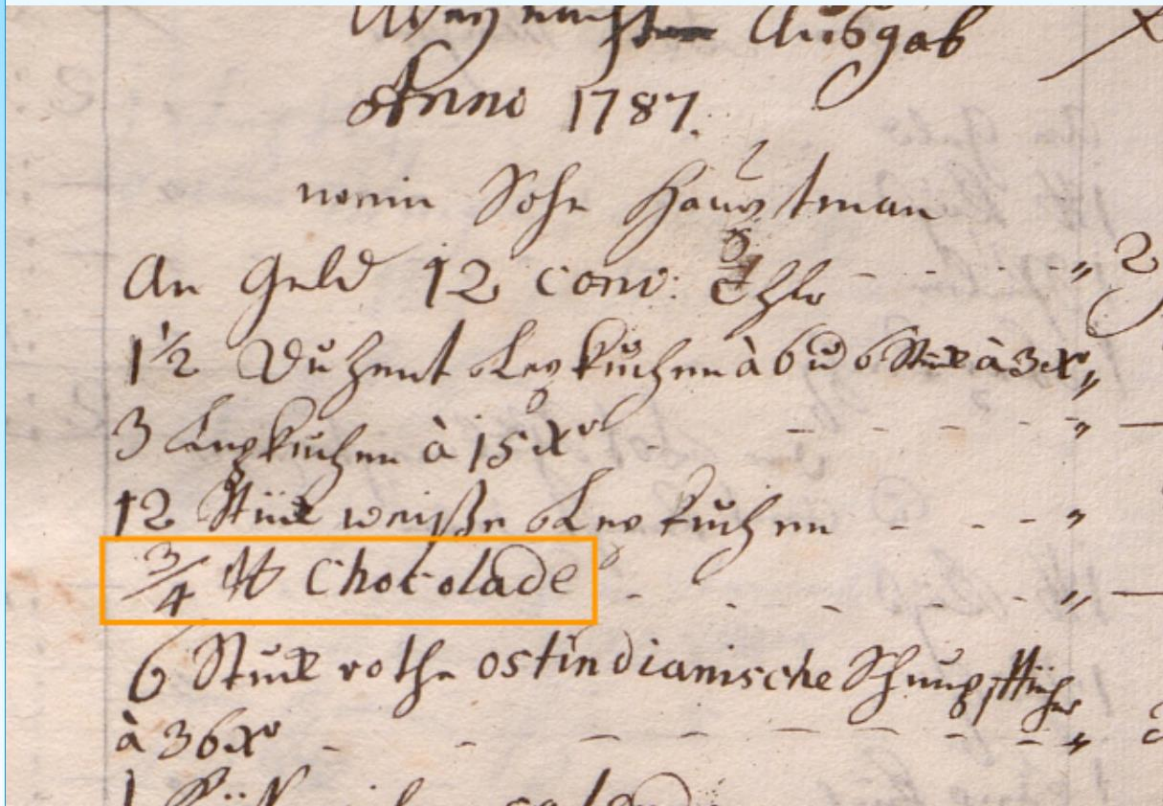 Weynachten Ausgab
Anno 1787.
mein Sohn Hauptman
An Geld 12 conv: Thlr - - - - - „ 2
1½ Duzent Lebkuchen à 6 u 6 Stuck à 3 xr „
3 Lebkuchen à 15 xr - - - - - „ —
12 Stück weiße Lebkuchen - - - - „
¾ ℔ Chocolade - - - - - „ —
6 Stuck rothe ostindianische Schnupftücher
à 36 xr - - - - - - - - „